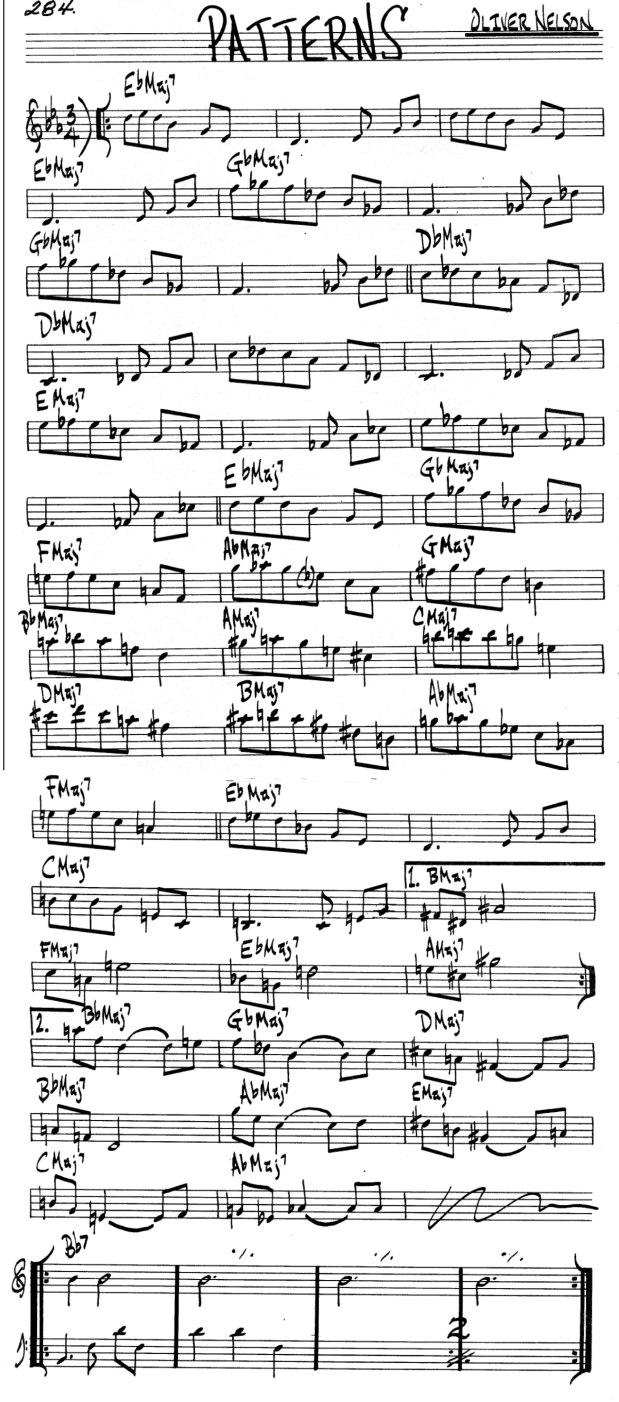 284.
PATTERNS
OLIVER NELSON
3
4
EbMaj7
EbMaj7 GbMaj7
GbMaj7 DbMaj7
DbMaj7
EMaj7
EbMaj7 GbMaj7
FMaj7 AbMaj7 GMaj7
(b)
BbMaj7 AMaj7 CMaj7
DMaj7 BMaj7 AbMaj7
FMaj7 EbMaj7
CMaj7 1. BMaj7
FMaj7 EbMaj7 AMaj7
2. BbMaj7 GbMaj7 DMaj7
BbMaj7 AbMaj7 EMaj7
CMaj7 AbMaj7
Bb7
2